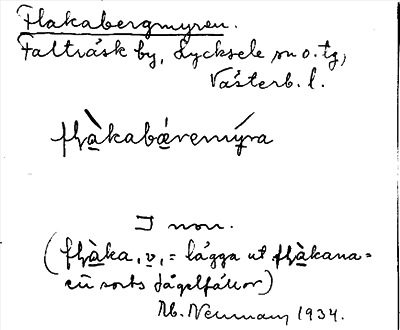 Flakabergmyren.
Falträsk by, Lycksele sn o. tg,
Västerb. l.
flàkabǽremýra
I non.
(flàka, v, = lägga ut flàkana =
en sorts fågelfällor)
M. Neuman 1934.